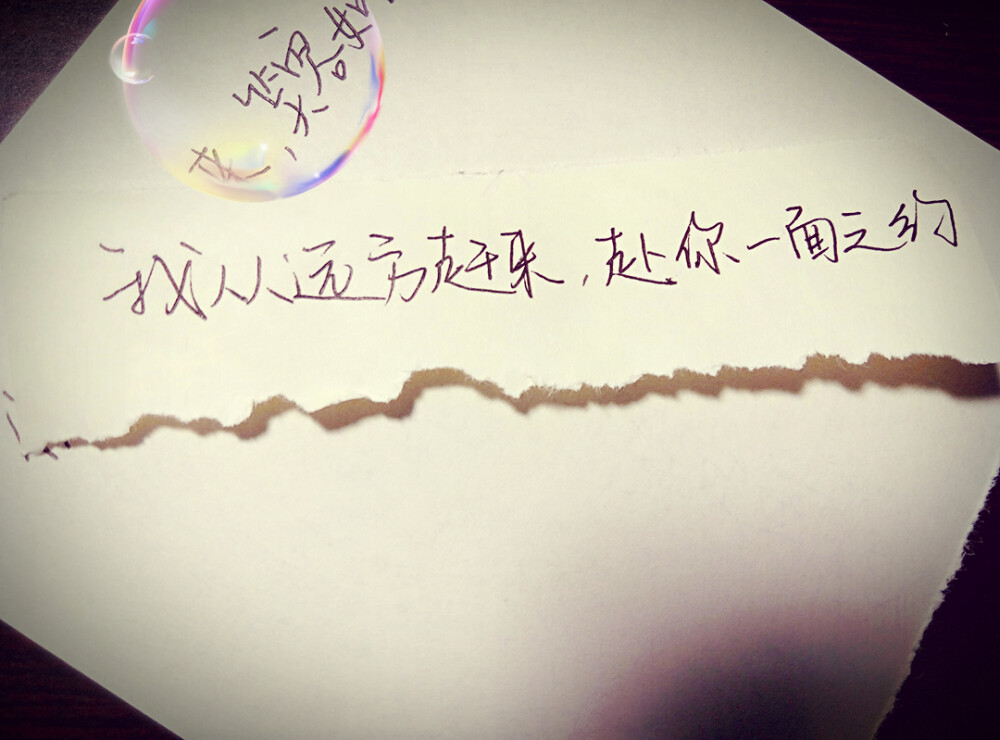 我从远方赶来，赴你一面之约